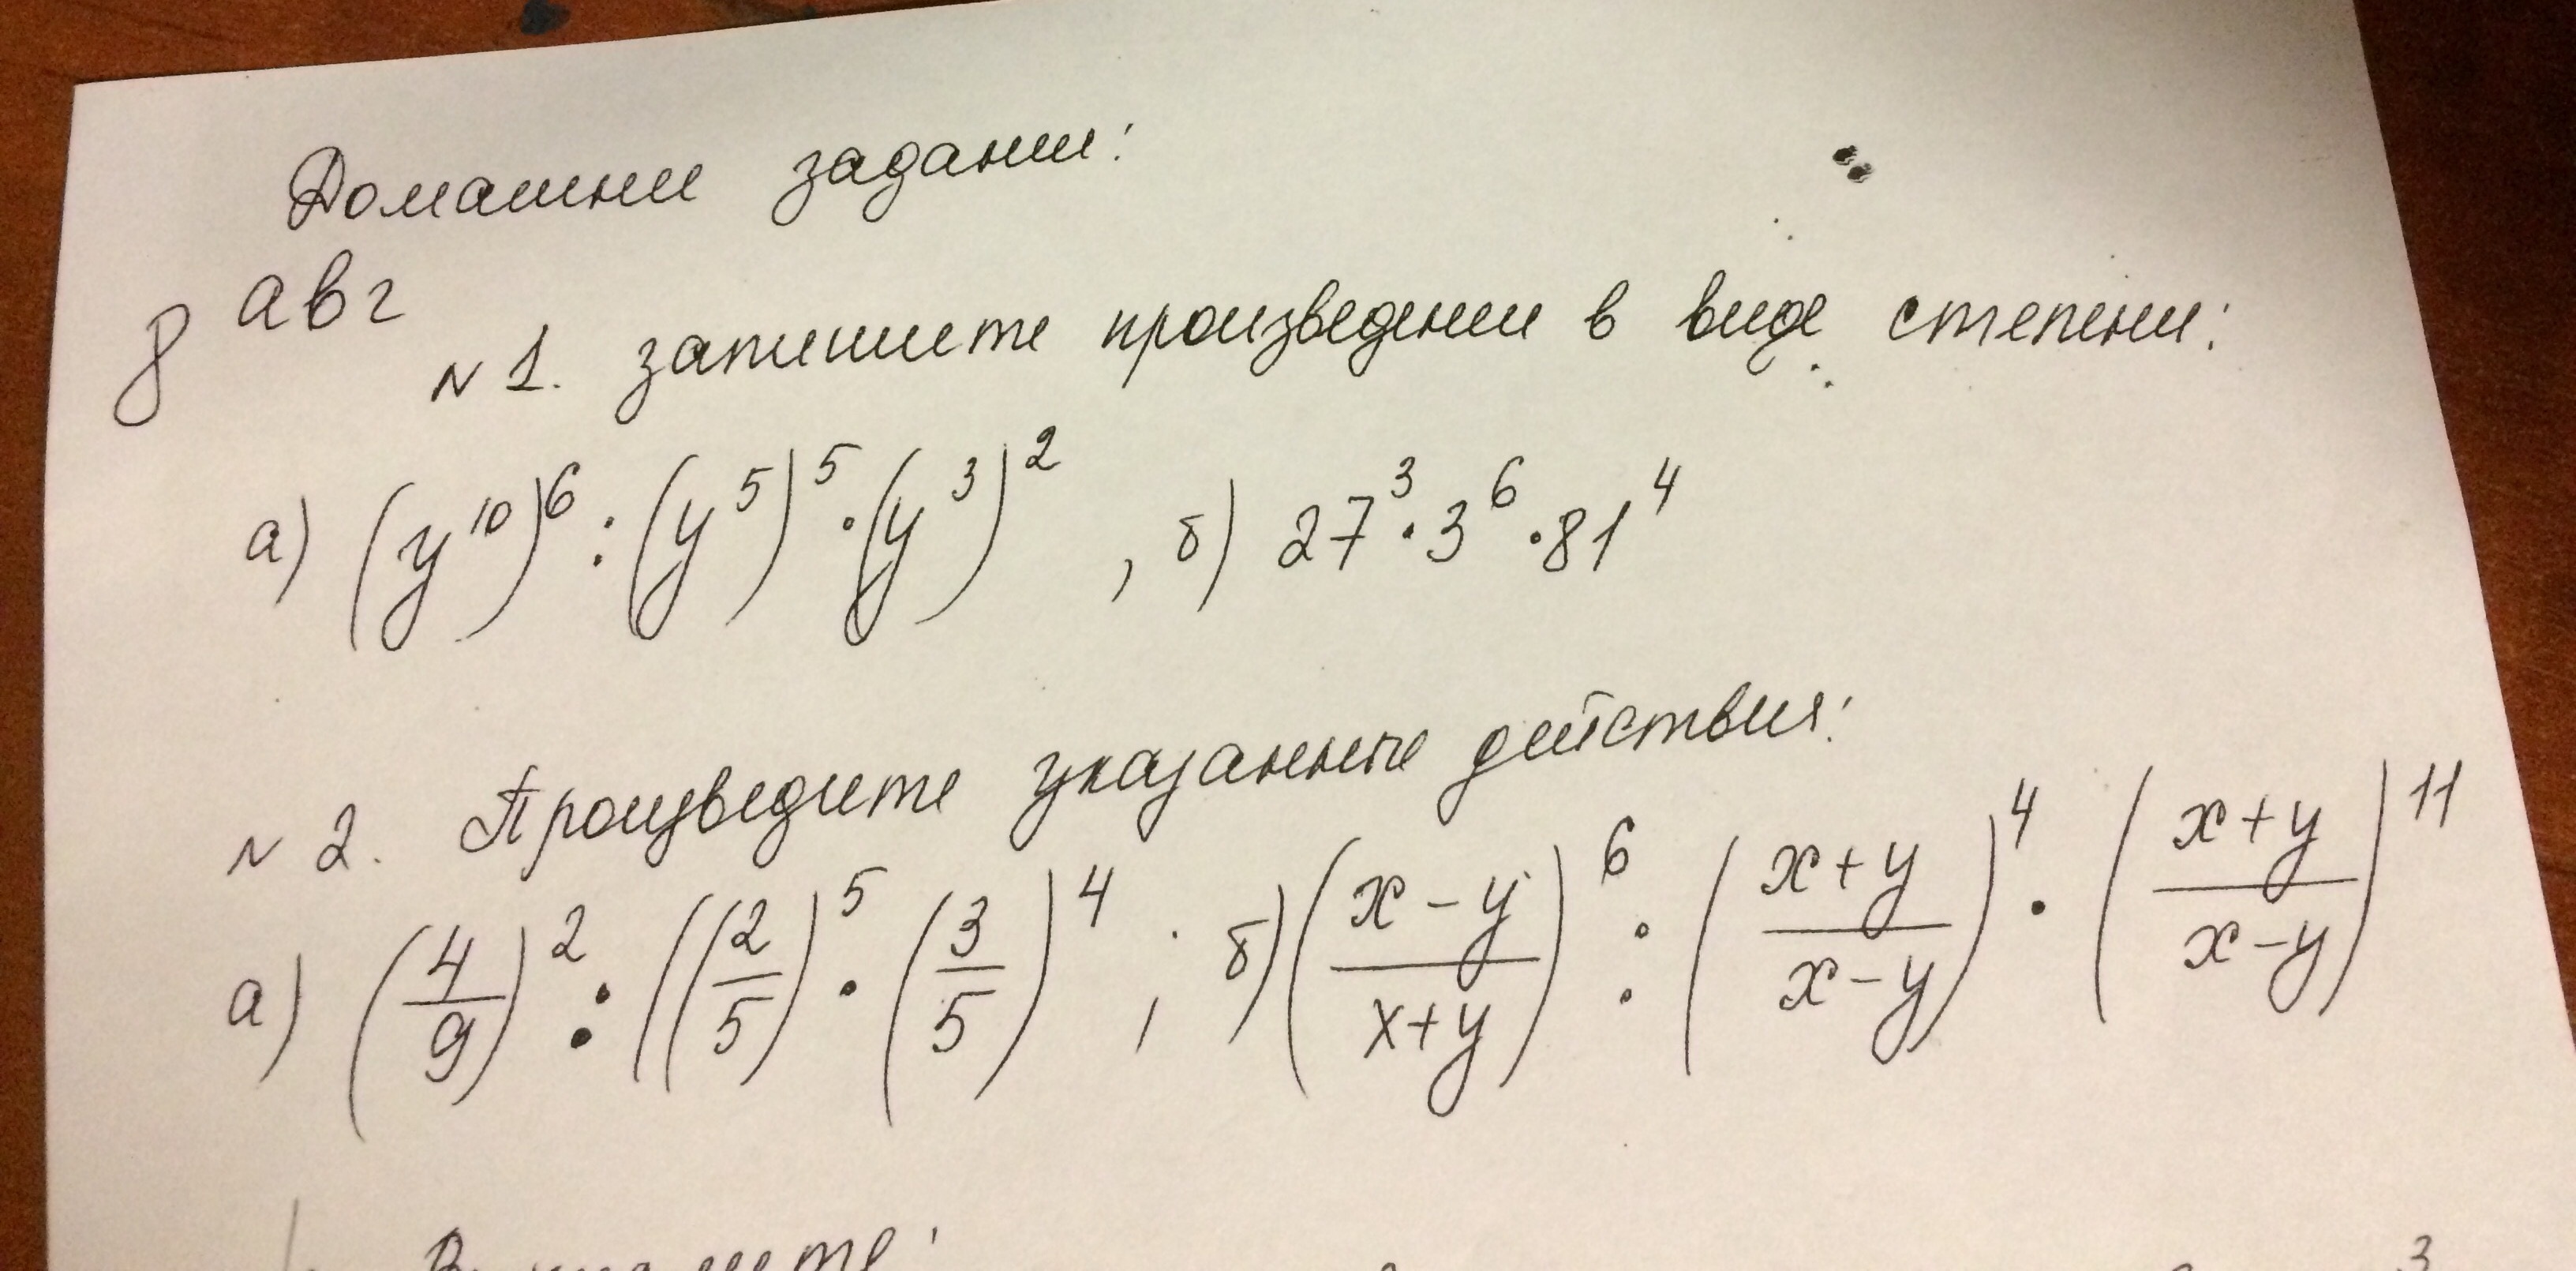 Домашние задание:
8 авг
№1. запишите произведение в виде степени:
а) (y¹⁰)⁶ : (y⁵)⁵ · (y³)² , б) 27³ · 3⁶ · 81⁴
№2. Произведите указанные действия:
а) (4/9)² : ((2/5)⁵ · (3/5)⁴ ; б) ((x-y)/(x+y))⁶ : ((x+y)/(x-y))⁴ · ((x+y)/(x-y))¹¹